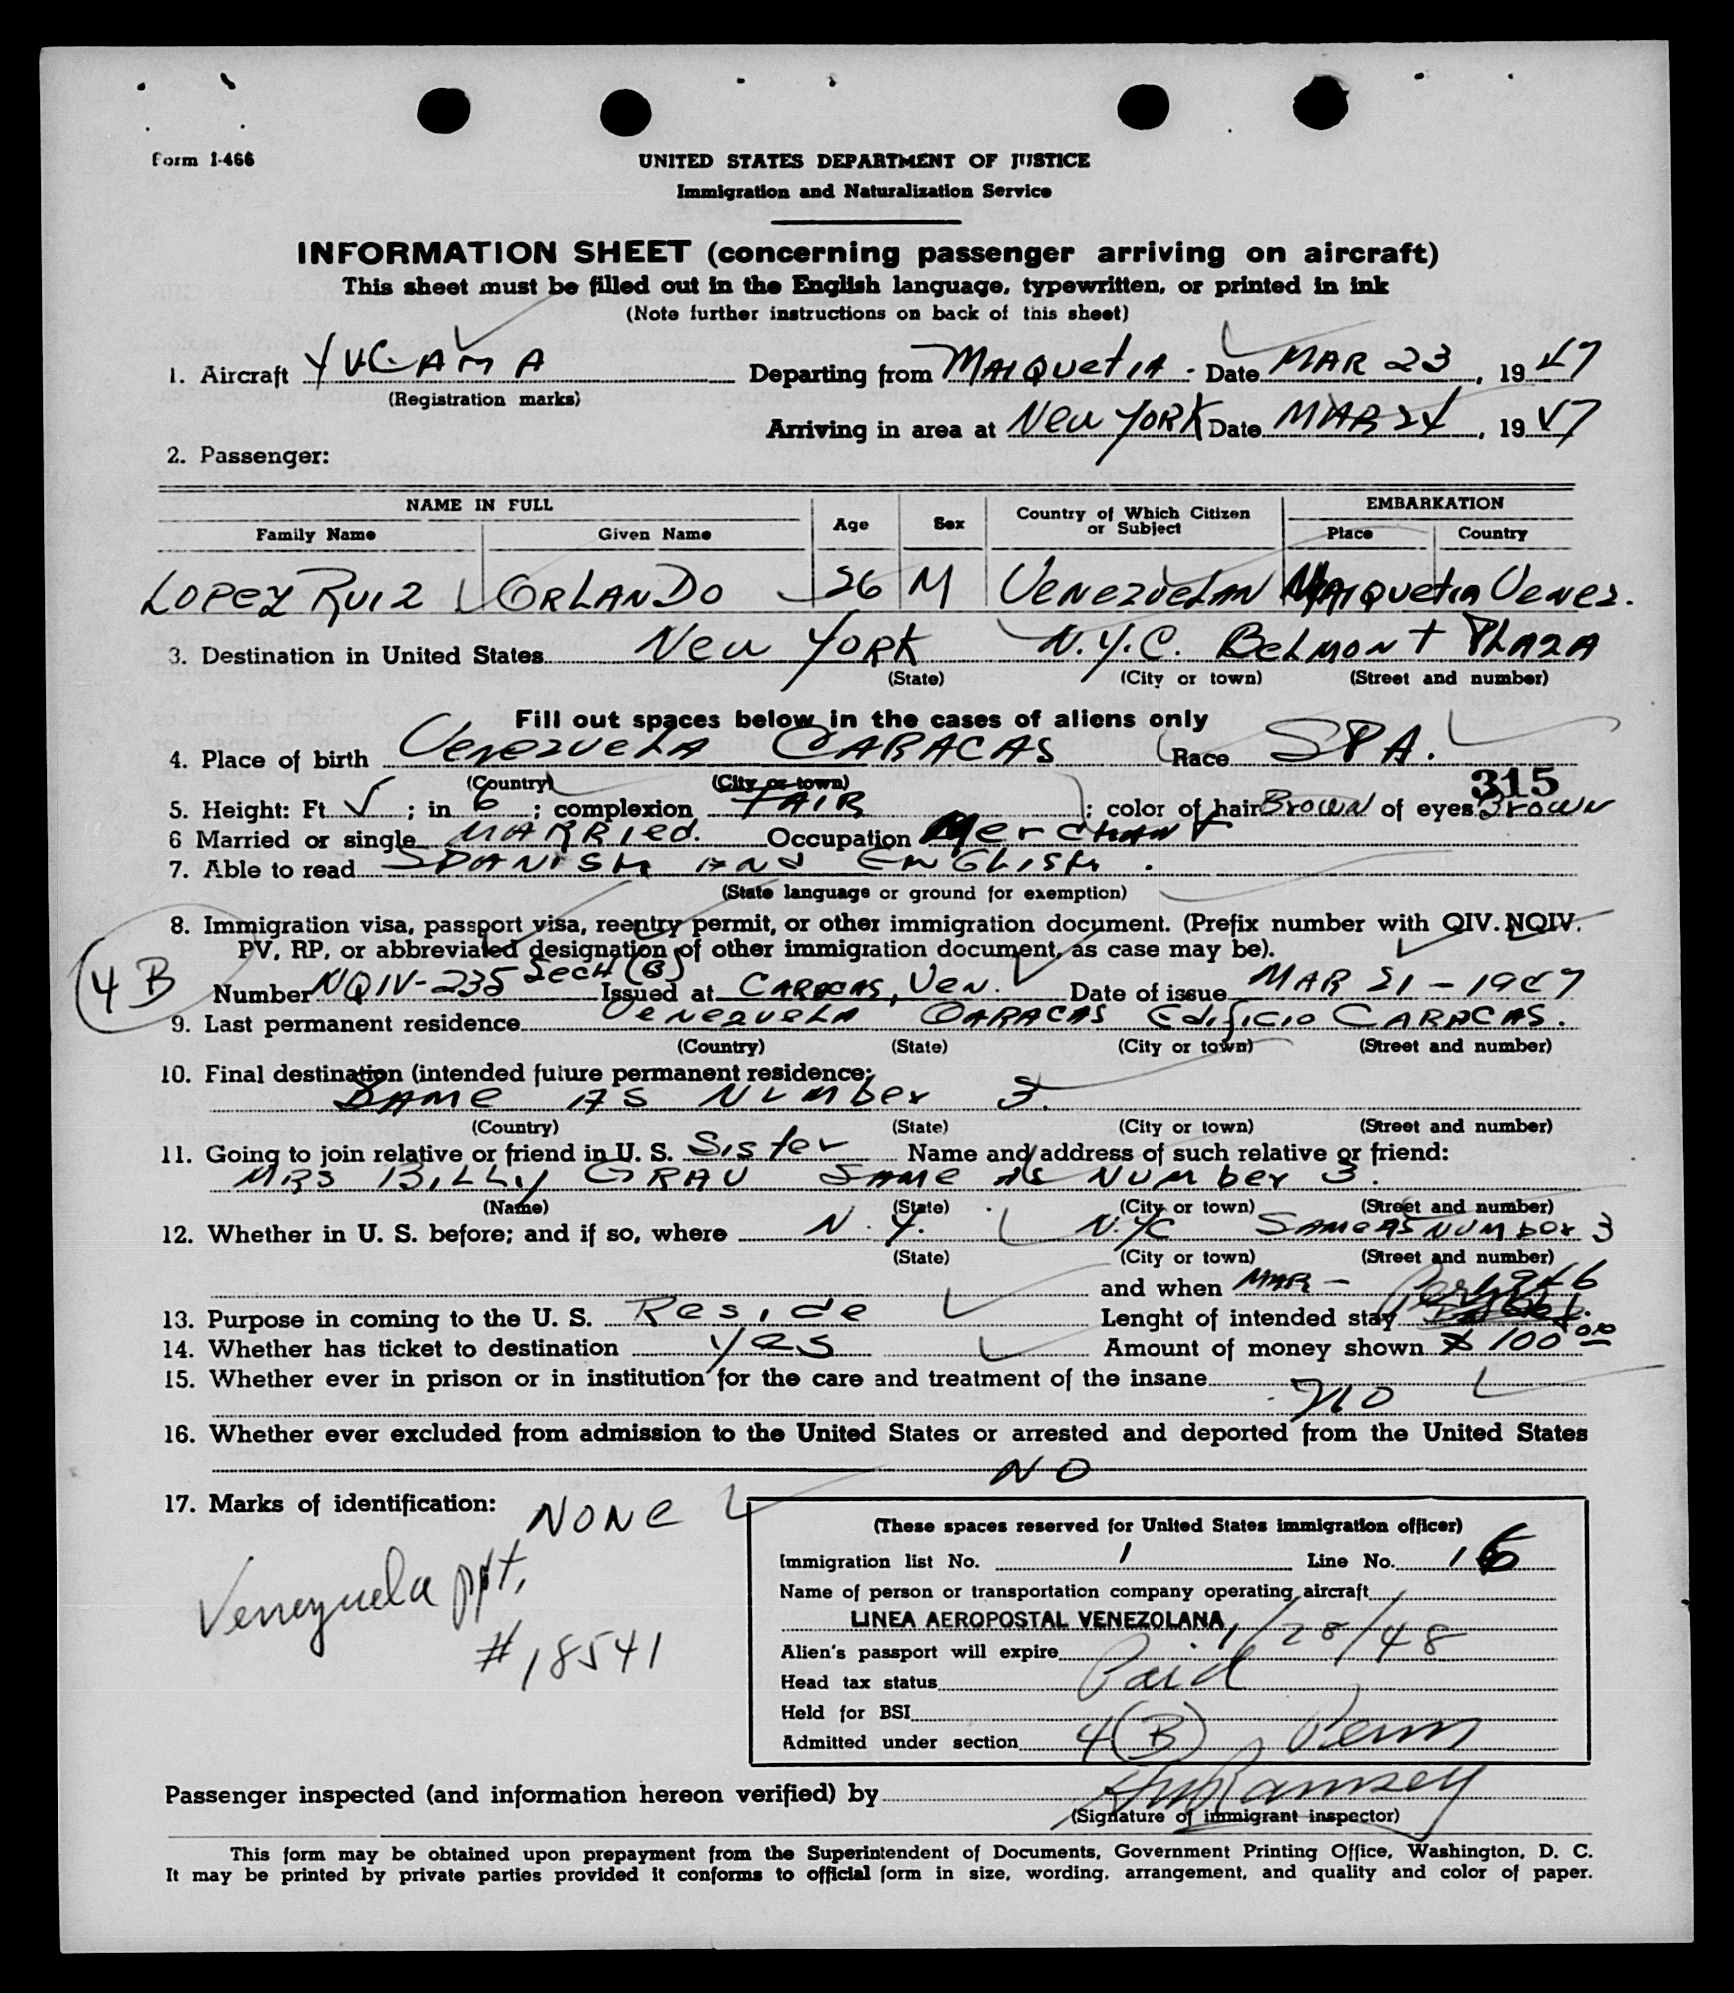 Form I-466
UNITED STATES DEPARTMENT OF JUSTICE
Immigration and Naturalization Service
INFORMATION SHEET (concerning passenger arriving on aircraft)
This sheet must be filled out in the English language, typewritten, or printed in ink
(Note further instructions on back of this sheet)
1. Aircraft YVCAMA Departing from MAIQUETIA - Date MAR 23, 1947
(Registration marks)
Arriving in area at NEW YORK Date MAR 24, 1947
2. Passenger:
NAME IN FULL EMBARKATION
Family Name Given Name Age Sex Country of Which Citizen or Subject Place Country
LOPEZ RUIZ ORLANDO 26 M VENEZUELAN MAIQUETIA VENEZ.
3. Destination in United States NEW YORK N.Y.C. BELMONT PLAZA
(State) (City or town) (Street and number)
Fill out spaces below in the cases of aliens only
4. Place of birth VENEZUELA CARACAS Race SPA.
(Country) (City or town) 315
5. Height: Ft 5; in 6; complexion FAIR; color of hair BROWN of eyes BROWN
6 Married or single MARRIED. Occupation MERCHANT
7. Able to read SPANISH AND ENGLISH.
(State language or ground for exemption)
8. Immigration visa, passport visa, reentry permit, or other immigration document. (Prefix number with QIV. NQIV.
PV, RP, or abbreviated designation of other immigration document, as case may be).
4B Number NQIV-235 Sec 4 (B) Issued at CARACAS, VEN. Date of issue MAR 21-1947
9. Last permanent residence VENEZUELA CARACAS EDIFICIO CARACAS.
(Country) (State) (City or town) (Street and number)
10. Final destination (intended future permanent residence:
SAME AS NUMBER 3.
(Country) (State) (City or town) (Street and number)
11. Going to join relative or friend in U. S. SISTER Name and address of such relative or friend:
MRS BILLY GRAU SAME AS NUMBER 3.
(Name) (State) (City or town) (Street and number)
12. Whether in U. S. before; and if so, where N.Y. N.YC SAME AS NUMBER 3
(State) (City or town) (Street and number)
and when MAR - 1946
13. Purpose in coming to the U. S. RESIDE Lenght of intended stay
14. Whether has ticket to destination YES Amount of money shown $ 100 00
15. Whether ever in prison or in institution for the care and treatment of the insane
NO
16. Whether ever excluded from admission to the United States or arrested and deported from the United States
NO
17. Marks of identification: NONE
Venezuela ppt,
# 18541
(These spaces reserved for United States immigration officer)
Immigration list No. 1 Line No. 16
Name of person or transportation company operating aircraft
LINEA AEROPOSTAL VENEZOLANA
Alien's passport will expire 1/28/48
Head tax status Paid
Held for BSI
Admitted under section 4(B) Perm
Passenger inspected (and information hereon verified) by Ramsey
(Signature of immigrant inspector)
This form may be obtained upon prepayment from the Superintendent of Documents, Government Printing Office, Washington, D. C.
It may be printed by private parties provided it conforms to official form in size, wording, arrangement, and quality and color of paper.